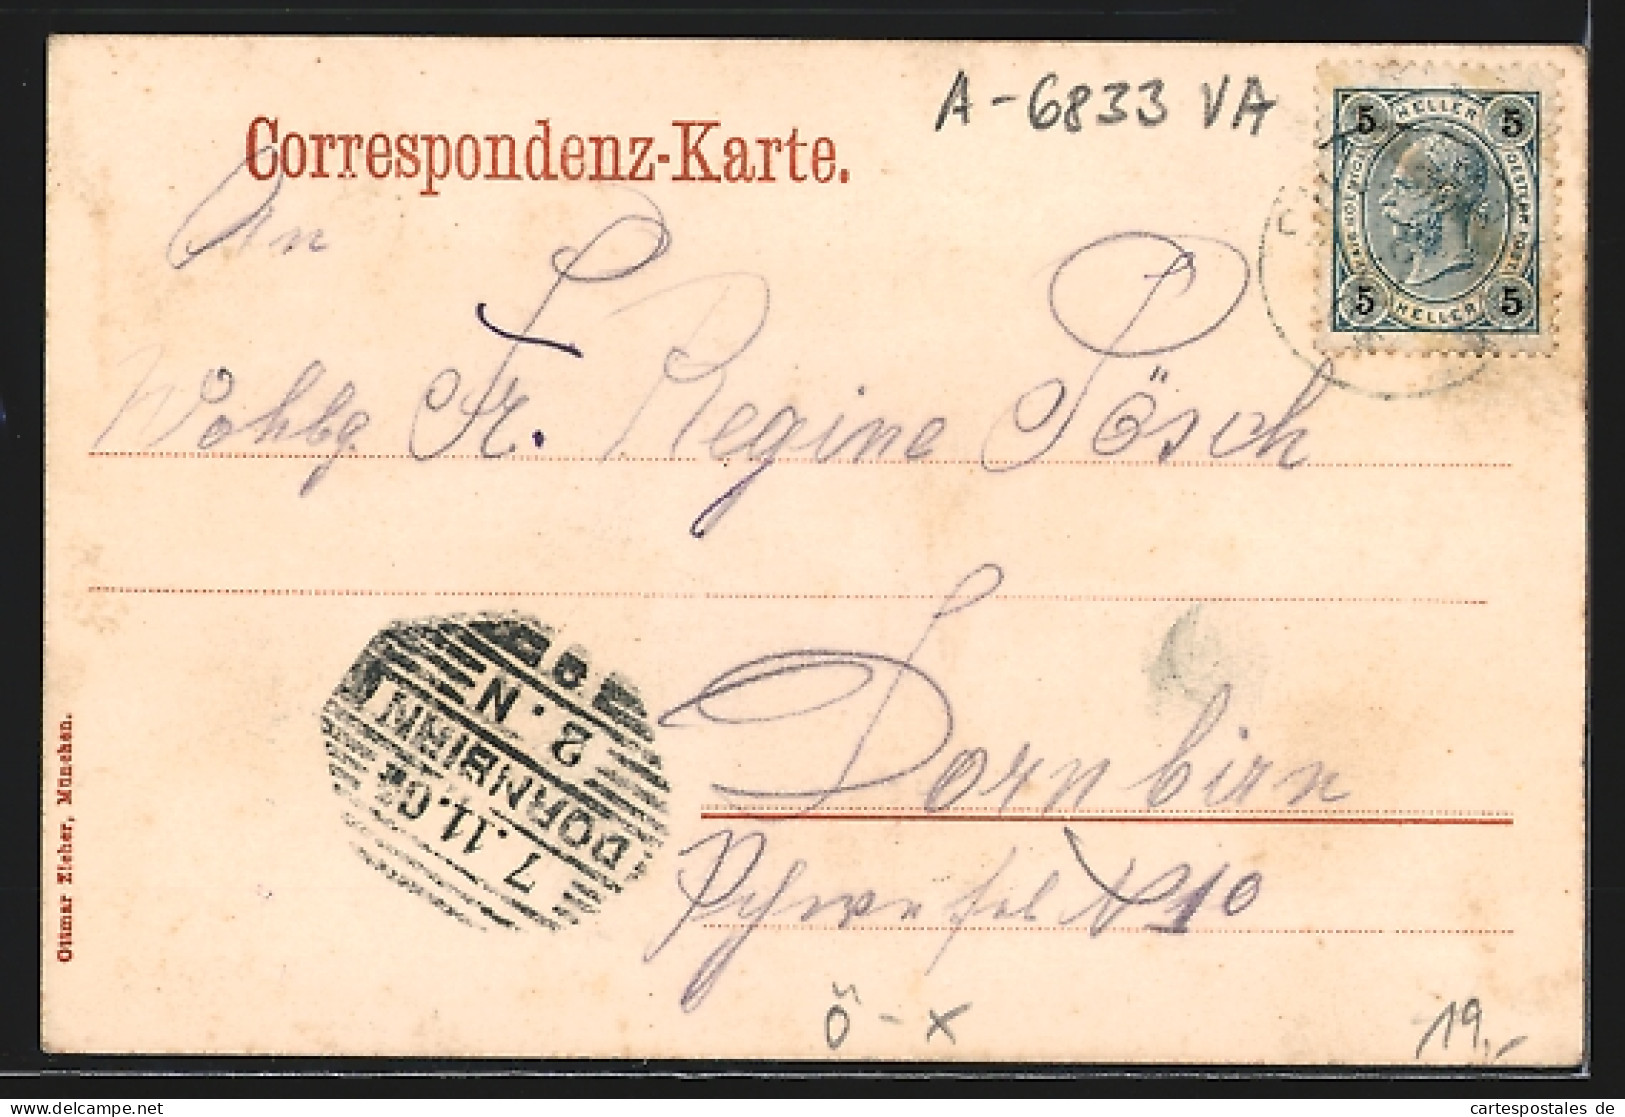 A-6833 VA
Correspondenz-Karte.
5 HELLER 5
KAIS. KOENIGL.
OESTERR. POST
5 HELLER 5
An
Wohlg. Fr. Regine Pösch
Dornbirn
N 10
7.11.
DORNBIRN
2.N
Ottmar Zieher, München.
Ö - X
19,-
cartespostales de